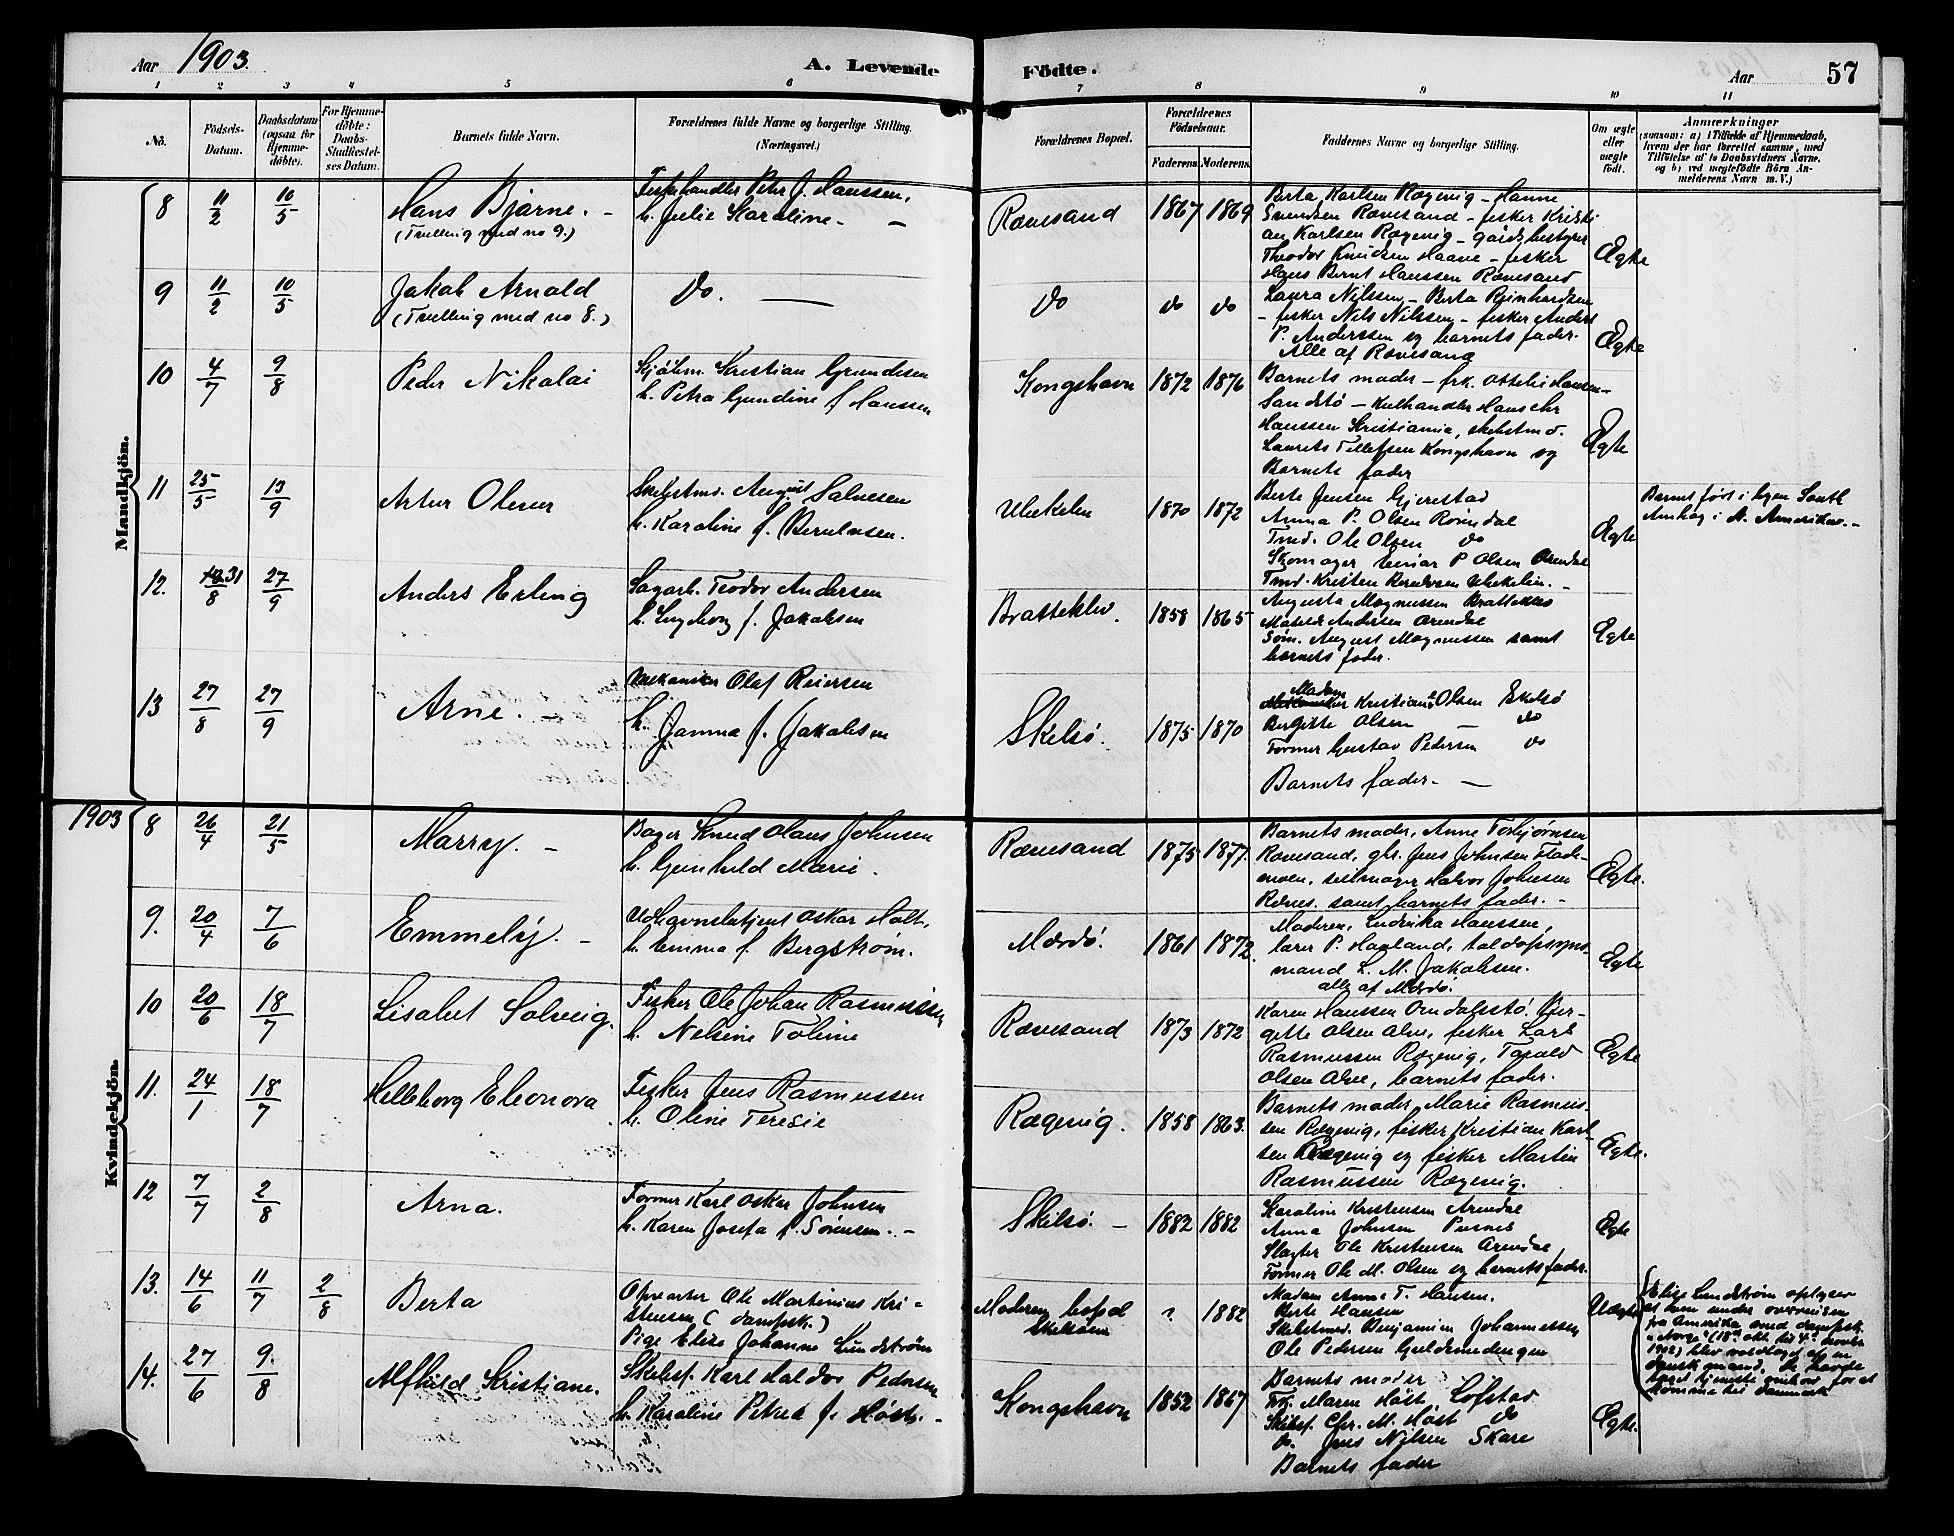 Aar 1903.
A. Levende Födte.
Aar
57
1 2 3 4 5 6 7 8 9 10 11
No.
Födsels-
Datum.
Daabsdatum
(ogsaa for
Hjemme-
döbte).
For Hjemme-
döbte:
Daabs-
Stadfæstel-
ses Datum.
Barnets fulde Navn.
Forældrenes fulde Navne og borgerlige Stilling.
(Næringsvei.)
Forældrenes Bopæl.
Forældrenes
Födselsaar.
Faderens. Moderens.
Faddernes Navne og borgerlige Stilling.
Om ægte
eller
uægte
födt.
Anmærkninger
(saasom: a) i Tilfælde af Hjemmedaab,
hvem der har forrettet samme, med
Tilföielse af to Daabsvidners Navne,
og b) ved uægtefödte Börn An-
melderens Navn m. V.)
Mandkjön.
8 11/2 10/5 Hans Bjarne. -
(Tvilling med no 9.)
Fiskehandler Peter J. Hanssen,
h. Julie Karoline -
Rævesand 1867 1869
Berta Karlsen Rægevig - Hanne
Gundsen Rævesand - fisker Kristi-
an Karlsen Rægevig - gårdsbestyrer
Theodor Knudsen Haave - fisker
Hans Bernt Hanssen Rævesand
Ægte
9 11/2 10/5 Jakob Arnold
(Tvilling med no 8.)
do. -
do do do
Laura Nilssen - Berta Reinhardsen
- fisker Nels Nilssen - fisker Anders
P. Anderssen og barnets fader.
Alle af Rævesand
Ægte
10 4/7 9/8 Peder Nikolai
Sjöhm. Kristian Gundesen
h. Petra Gundine f Hanssen
Kongshavn 1872 1876
Barnets moder - frk. Ottilie Hansen
Sandstö - Kulhandler Hans Chr
Hanssen Kristiania, skibstmd.
Laurits Tellefsen Kongshavn og
Barnets fader
Ægte
11 25/5 13/9 Artur Oliver
Skibstmd. August Salvesen
h. Karoline f. Berntsen.
Ubekilen 1870 1872
Berte Jensen Gjerestad
Anna P. Olsen
Tmd. Ole Olsen do
Skomager Einar P Olsen Arendal
Tmd. Kristen Ubekilen. -
Ægte
Barnet född i byen South
Amboy i N. Amerika. -
12. 31/8 27/9 Anders Erling
Sagarb. Teodor Andersen
h. Ingeborg f. Jakobsen
Bratteklev. 1858 1865
Augusta Magnussen Bratteklev
Matilde Andersen Arendal
Söm. August Magnussen samt
barnets fader.
Ægte
13 27/8 27/9 Arne. -
Mekaniker Olaf Reiersen
h. Jamma f. Jakobsen
Skilsö. 1875 1870
Madam Kristiane Olsen Skilsö
Bergitte Olsen - do
Former Gustav Pedersen do
Barnets fader - -
Kvindekjön.
1903
8 26/4 21/5 Marry. -
Bager Knud Olaus Johnsen
h. Gunhild Marie.
Rævesand 1875 1877.
Barnets moder, Anne Torbjørnsen
Rævesand, gbr. Jens Johnsen Flade-
moen, seilmager Halvor Johnsen
Ræves. samt barnets fader. -
Ægte.
9. 20/4 7/6 Emmely. -
Udhavnsbetjent Oskar Holt,
h. Emma f. Bergstrøm.
Mærdö. 1861 1872.
Moderen, Ludvika Hanssen,
lærer P. Havland, toldopsyns-
mand L. M. Jakobsen.
alle af Mærdö.
Ægte
10 20/6 18/7 Lisabet Solveig.
Fisker Ole Johan Rasmussen
h. Nelsine Toline
Rævesand 1873 1872
Karen Hanssen Omdalsstö. Ber-
gitte Olsen Alve, fisker Lars
Rasmussen Rægevig, Torald
Olsen Alve, barnets fader.
Ægte
11. 24/1 18/7 Helleborg Eleonora
Fisker Jens Rasmussen
h. Oline Teresie
Rægevig. 1858 1863.
Barnets moder, Marie Rasmus-
sen Rægevig, fisker Kristian Karl-
sen Rægevig og fisker Martin
Rasmussen Rægevig.
Ægte.
12 7/7 2/8 Arna.
Former Karl Oskar Johnsen
h. Karen Josefa f. Sörensen. -
Skilsö. - 1882 1882
Karoline Kristensen Arendal
Anna Johnsen Pusnes
Slagter Ole Kristensen Arendal
Former Ole M. Olsen og barnets fader.
Ægte
13. 14/6 11/7 2/8 Berta
Opvarter Ole Martinius Kri-
stensen (dampsk.)
Pige Elise Johanne Lundström
Moderens bopæl
Skilsöen
? 1882
Madam Anne T. Hansen.
Berte Hansen
Skibstmd. Benjamin Johannessen
Ole Pedersen Guldsmedengen
Uægte
Elise Lundström oplyser
at hun under overreisen
fra Amerika med dampsk.
"Norge" (18de okt. til 4de novbr
1902) blev voldtaget af en
dansk mand, de havde
taget tjeneste ombord for at
komme til Danmark
14. 27/6 9./8 Alfhild Kristiane.
Skibsf. Karl Haldor Pedersen
h. Karoline Petrea f. Höst. -
Kongshavn 1852 1867
Barnets moder
Frk. Maren Höst, Lofstad
Skibsf. Chr. M. Höst do
do. Jens Nilsen Skare
Barnets fader
Ægte.